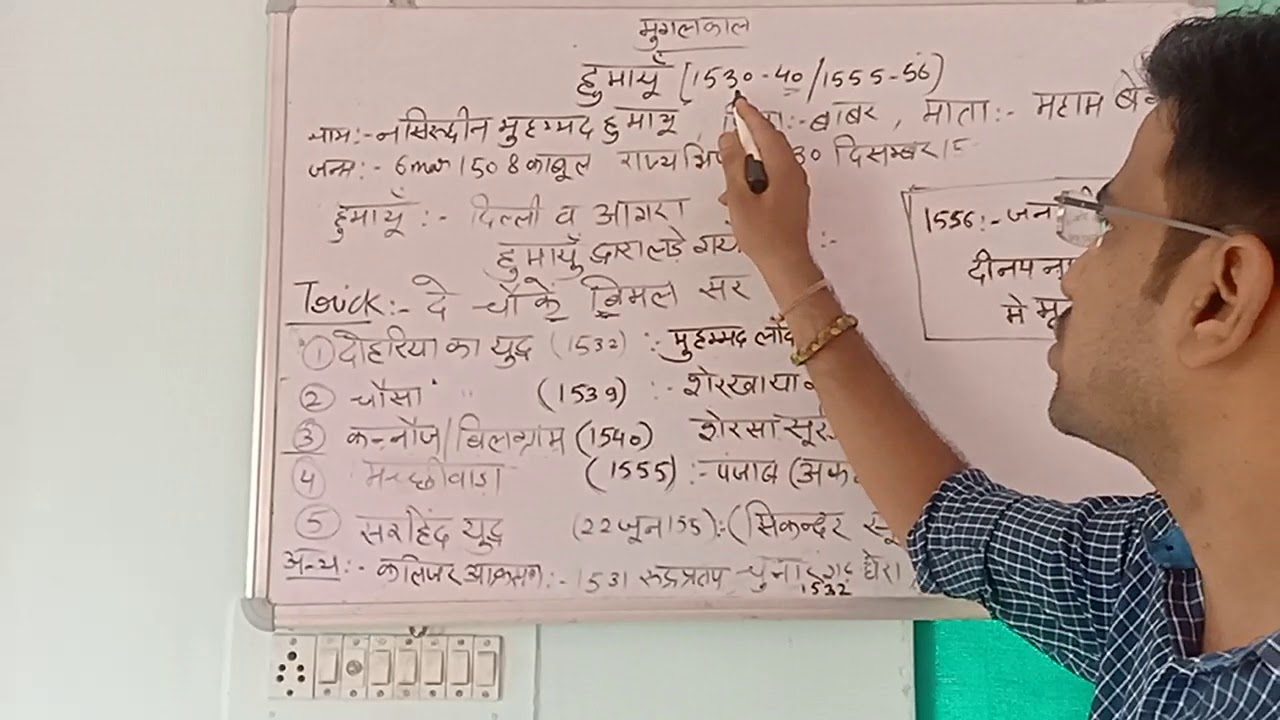 मुगलकाल
हुमायूँ [1530-40/1555-56)
नाम:- नसिरुद्दीन मुहम्मद हुमायू :- बाबर, माता:- महाम
जन्म:- 6 mar 1508 काबूल 30 दिसम्बर
हुमायूँ :- दिल्ली व आगरा
हुमायूँ द्वारा लड़े गये :-
1556:-
Trick:- दे चौकें बिमल सर
① दोहरिया का युद्ध (1532) :- मुहम्मद
② चौसा " (1539) :- शेरखा
③ कन्नौज/बिलग्राम (1540) शेरसा
④ मच्छीवाड़ा (1555) :- पंजाब
⑤ सरहिंद युद्ध (22 जून 155) :- (सिकन्दर
अन्य:- कालिंजर आक्रमण:- 1531 रुद्रप्रताप घेरा
1532